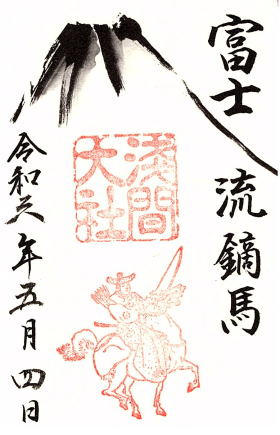 富士流鏑馬
浅間
大社
令和六年五月四日